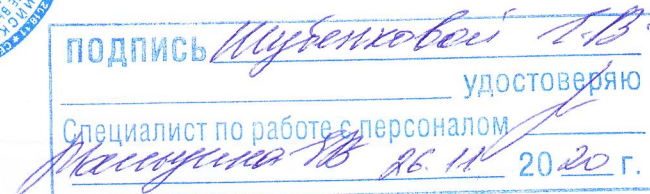 ПОДПИСЬ Шубенковой Т.В
удостоверяю
Специалист по работе с персоналом
26.11 2020 г.